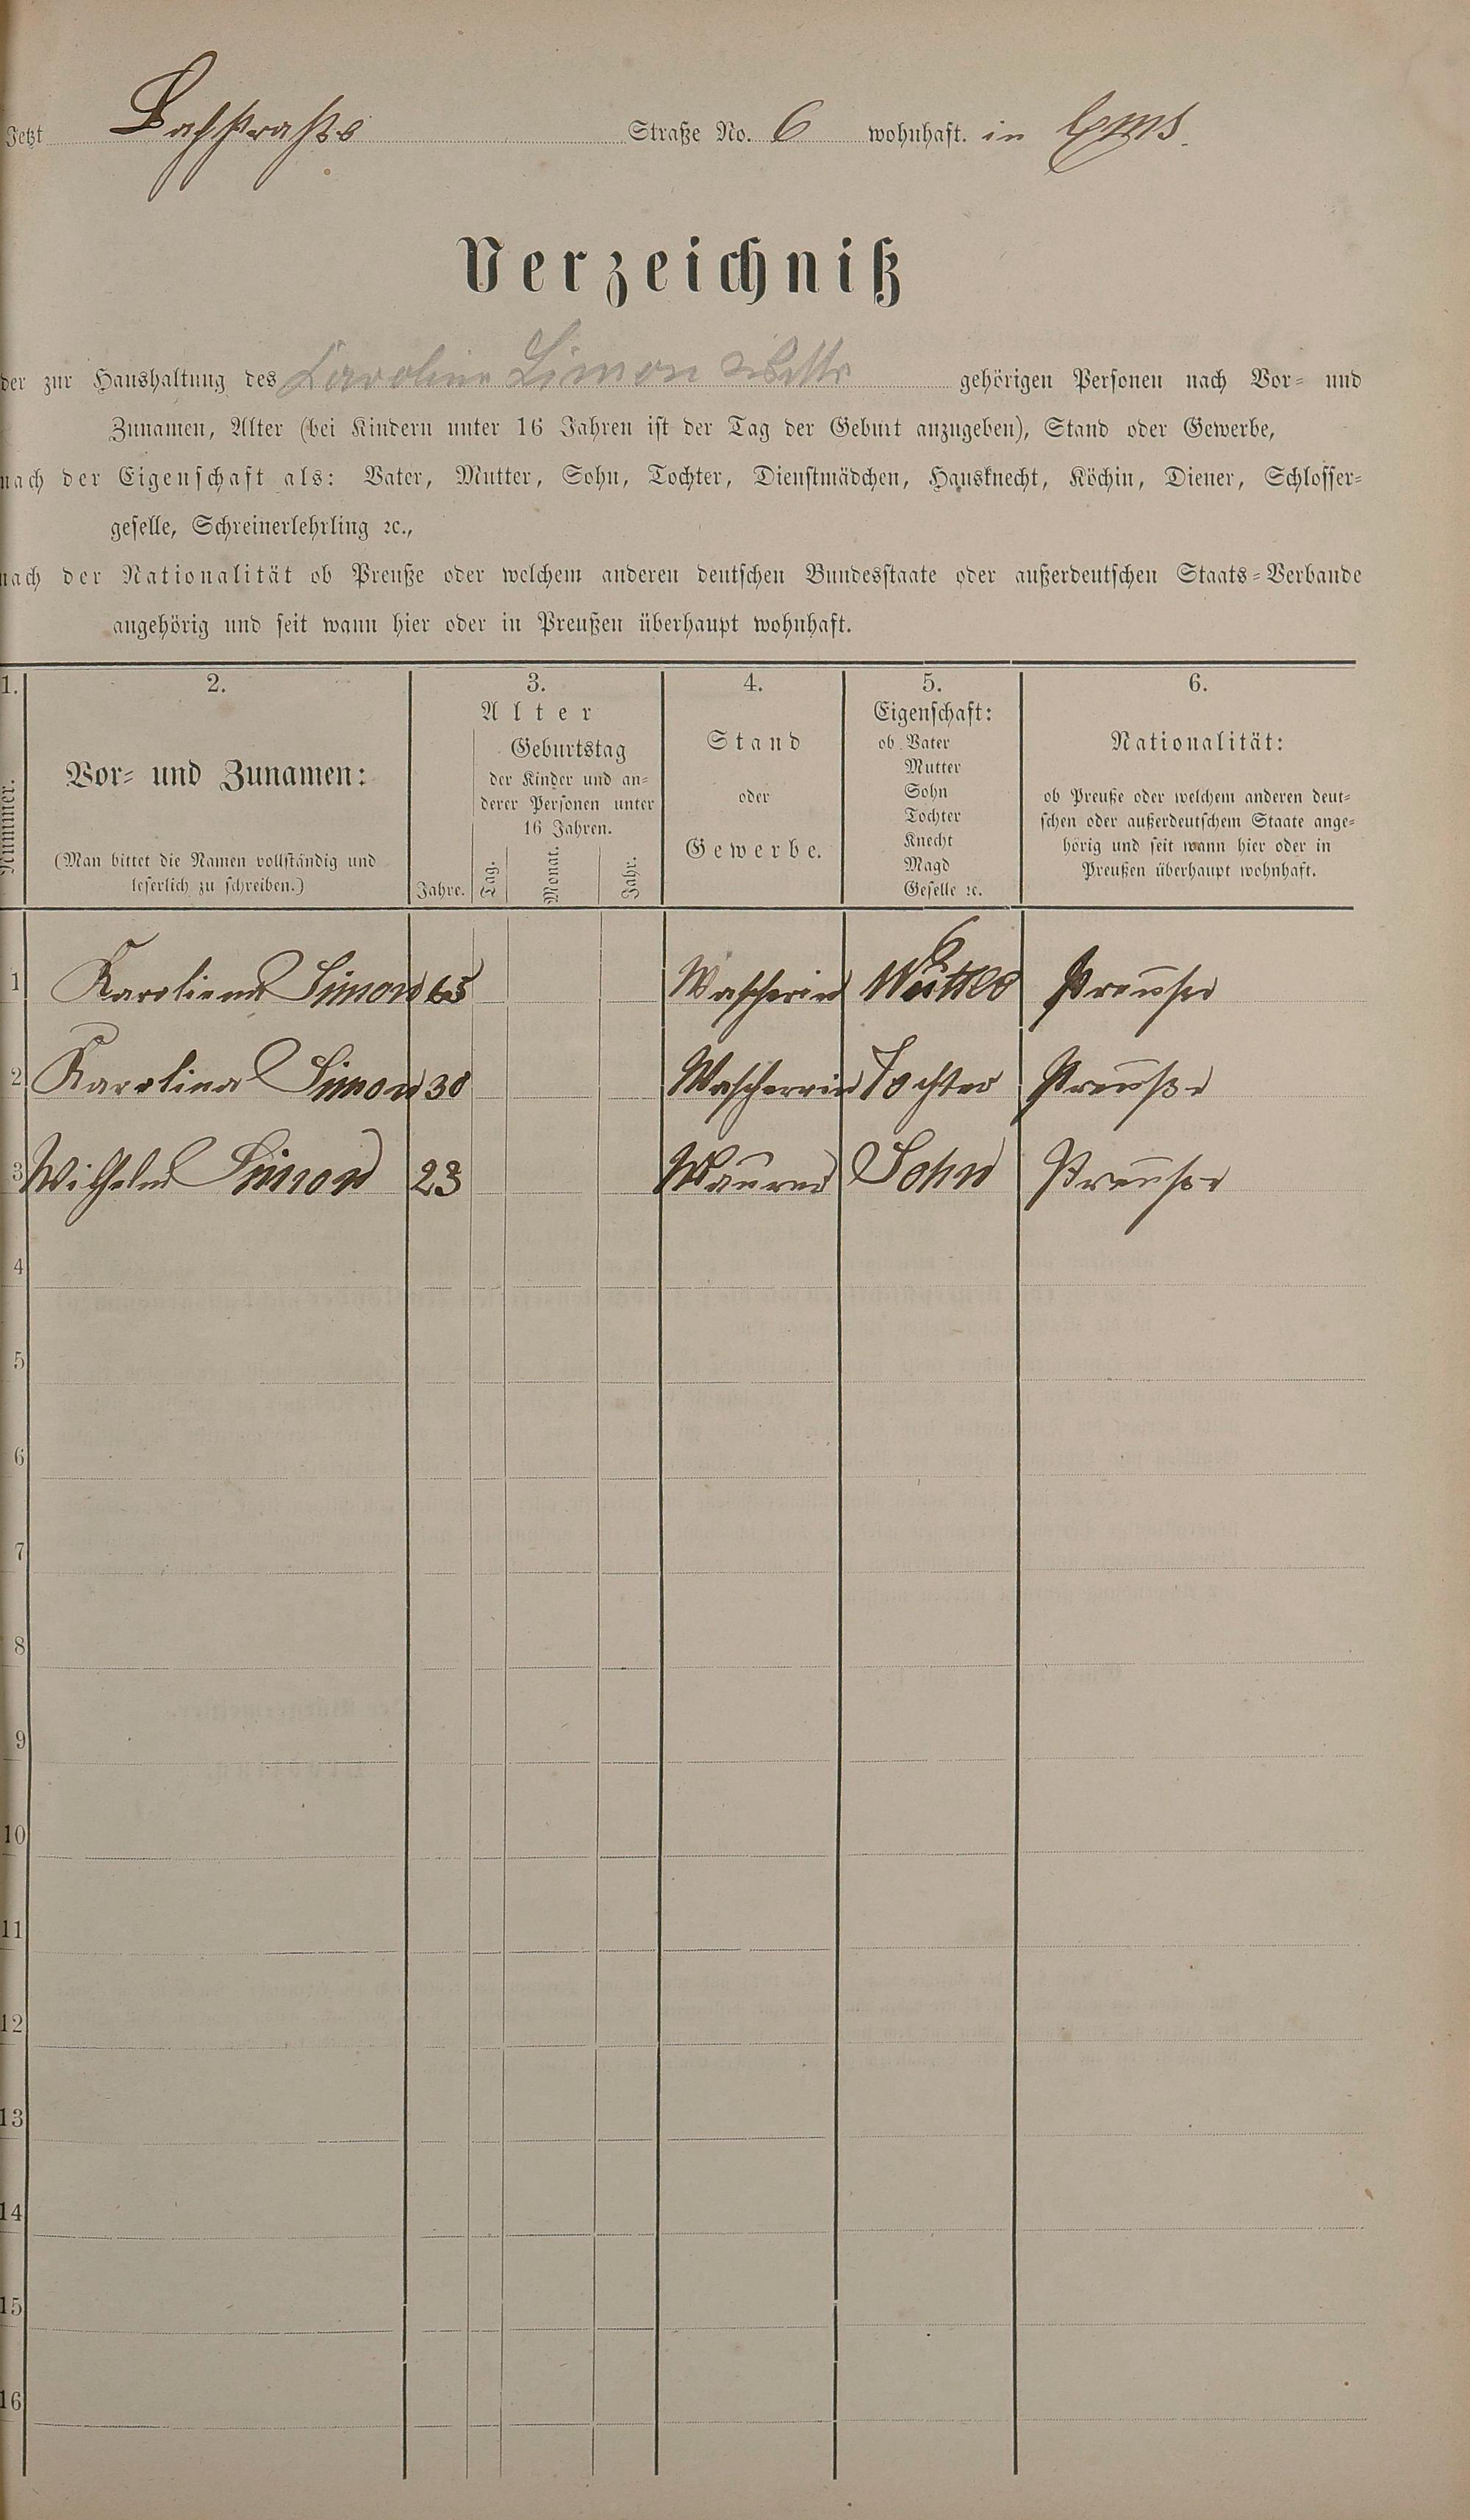 Jetzt Bachstraße Straße No. 6 wohnhaft. in Ems.
Verzeichniß
der zur Haushaltung des Caroline Simon Wttw gehörigen Personen nach Vor- und
Zunamen, Alter (bei Kindern unter 16 Jahren ist der Tag der Geburt anzugeben), Stand oder Gewerbe,
nach der Eigenschaft als: Vater, Mutter, Sohn, Tochter, Dienstmädchen, Hausknecht, Köchin, Diener, Schlosser-
geselle, Schreinerlehrling ꝛc.,
nach der Nationalität ob Preuße oder welchem anderen deutschen Bundesstaate oder außerdeutschen Staats-Verbande
angehörig und seit wann hier oder in Preußen überhaupt wohnhaft.
1. 2. 3. 4. 5. 6.
Nummer.
Vor- und Zunamen:
(Man bittet die Namen vollständig und
leserlich zu schreiben.)
Alter
Jahre.
Geburtstag
der Kinder und an-
derer Personen unter
16 Jahren.
Tag. Monat. Jahr.
Stand
oder
Gewerbe.
Eigenschaft:
ob Vater
Mutter
Sohn
Tochter
Knecht
Magd
Geselle ꝛc.
Nationalität:
ob Preuße oder welchem anderen deut-
schen oder außerdeutschem Staate ange-
hörig und seit wann hier oder in
Preußen überhaupt wohnhaft.
1 Karoliena Simon 65 Wascherin Mutter Preuße
2 Karolina Simon 30 Wascherrin Tochter Preuße
3 Wilhelm Simon 23 Maurer Sohn Preuße
4
5
6
7
8
9
10
11
12
13
14
15
16